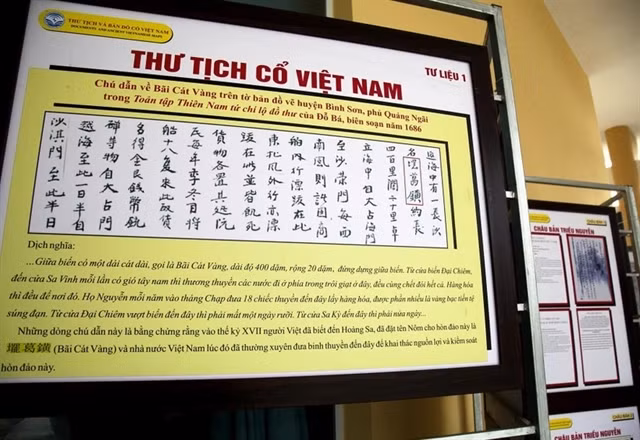 THƯ TỊCH VÀ BẢN ĐỒ CỔ VIỆT NAM
DOCUMENTS AND ANCIENT VIETNAMESE MAPS
THƯ TỊCH CỔ VIỆT NAM
TƯ LIỆU 1
Chú dẫn về Bãi Cát Vàng trên tờ bản đồ vẽ huyện Bình Sơn, phủ Quảng Ngãi
trong Toản tập Thiên Nam tứ chí lộ đồ thư của Đỗ Bá, biên soạn năm 1686
海中有一長沙
名 葛鐄約長
四百里闊二十里卓
立海中自大占海門
至沙榮門每西
南風則諸國商
舶內行漂跋在此
東北風外行亦漂
跋在此並皆飢死
貨物各置其處阮
氏每年季冬月將
船十八隻來此取貨
多得金銀錢幣銃
彈等物自大占門
越海至此一日半自
沙淇門至此半日
Dịch nghĩa:
...Giữa biển có một dải cát dài, gọi là Bãi Cát Vàng, dài độ 400 dặm, rộng 20 dặm, đứng dựng giữa biển. Từ cửa biển Đại Chiêm,
đến cửa Sa Vinh mỗi lần có gió tây nam thì thương thuyền các nước đi ở phía trong trôi giạt ở đây, đều cùng chết đói hết cả. Hàng hóa
thì đều để nơi đó. Họ Nguyễn mỗi năm vào tháng Chạp đưa 18 chiếc thuyền đến đây lấy hàng hóa, được phần nhiều là vàng bạc tiền tệ
súng đạn. Từ cửa Đại Chiêm vượt biển đến đây thì phải mất một ngày rưỡi. Từ cửa Sa Kỳ đến đây thì phải nửa ngày...
Những dòng chú dẫn này là bằng chứng rằng vào thế kỷ XVII người Việt đã biết đến Hoàng Sa, đã đặt tên Nôm cho hòn đảo này là
葛鐄 (Bãi Cát Vàng) và nhà nước Việt Nam lúc đó đã thường xuyên đưa binh thuyền đến đây để khai thác nguồn lợi và kiểm soát
hòn đảo này.
CHÂU BẢN TRIỀU NGUYỄN
CHÂU BẢN TRIỀU NGUYỄN